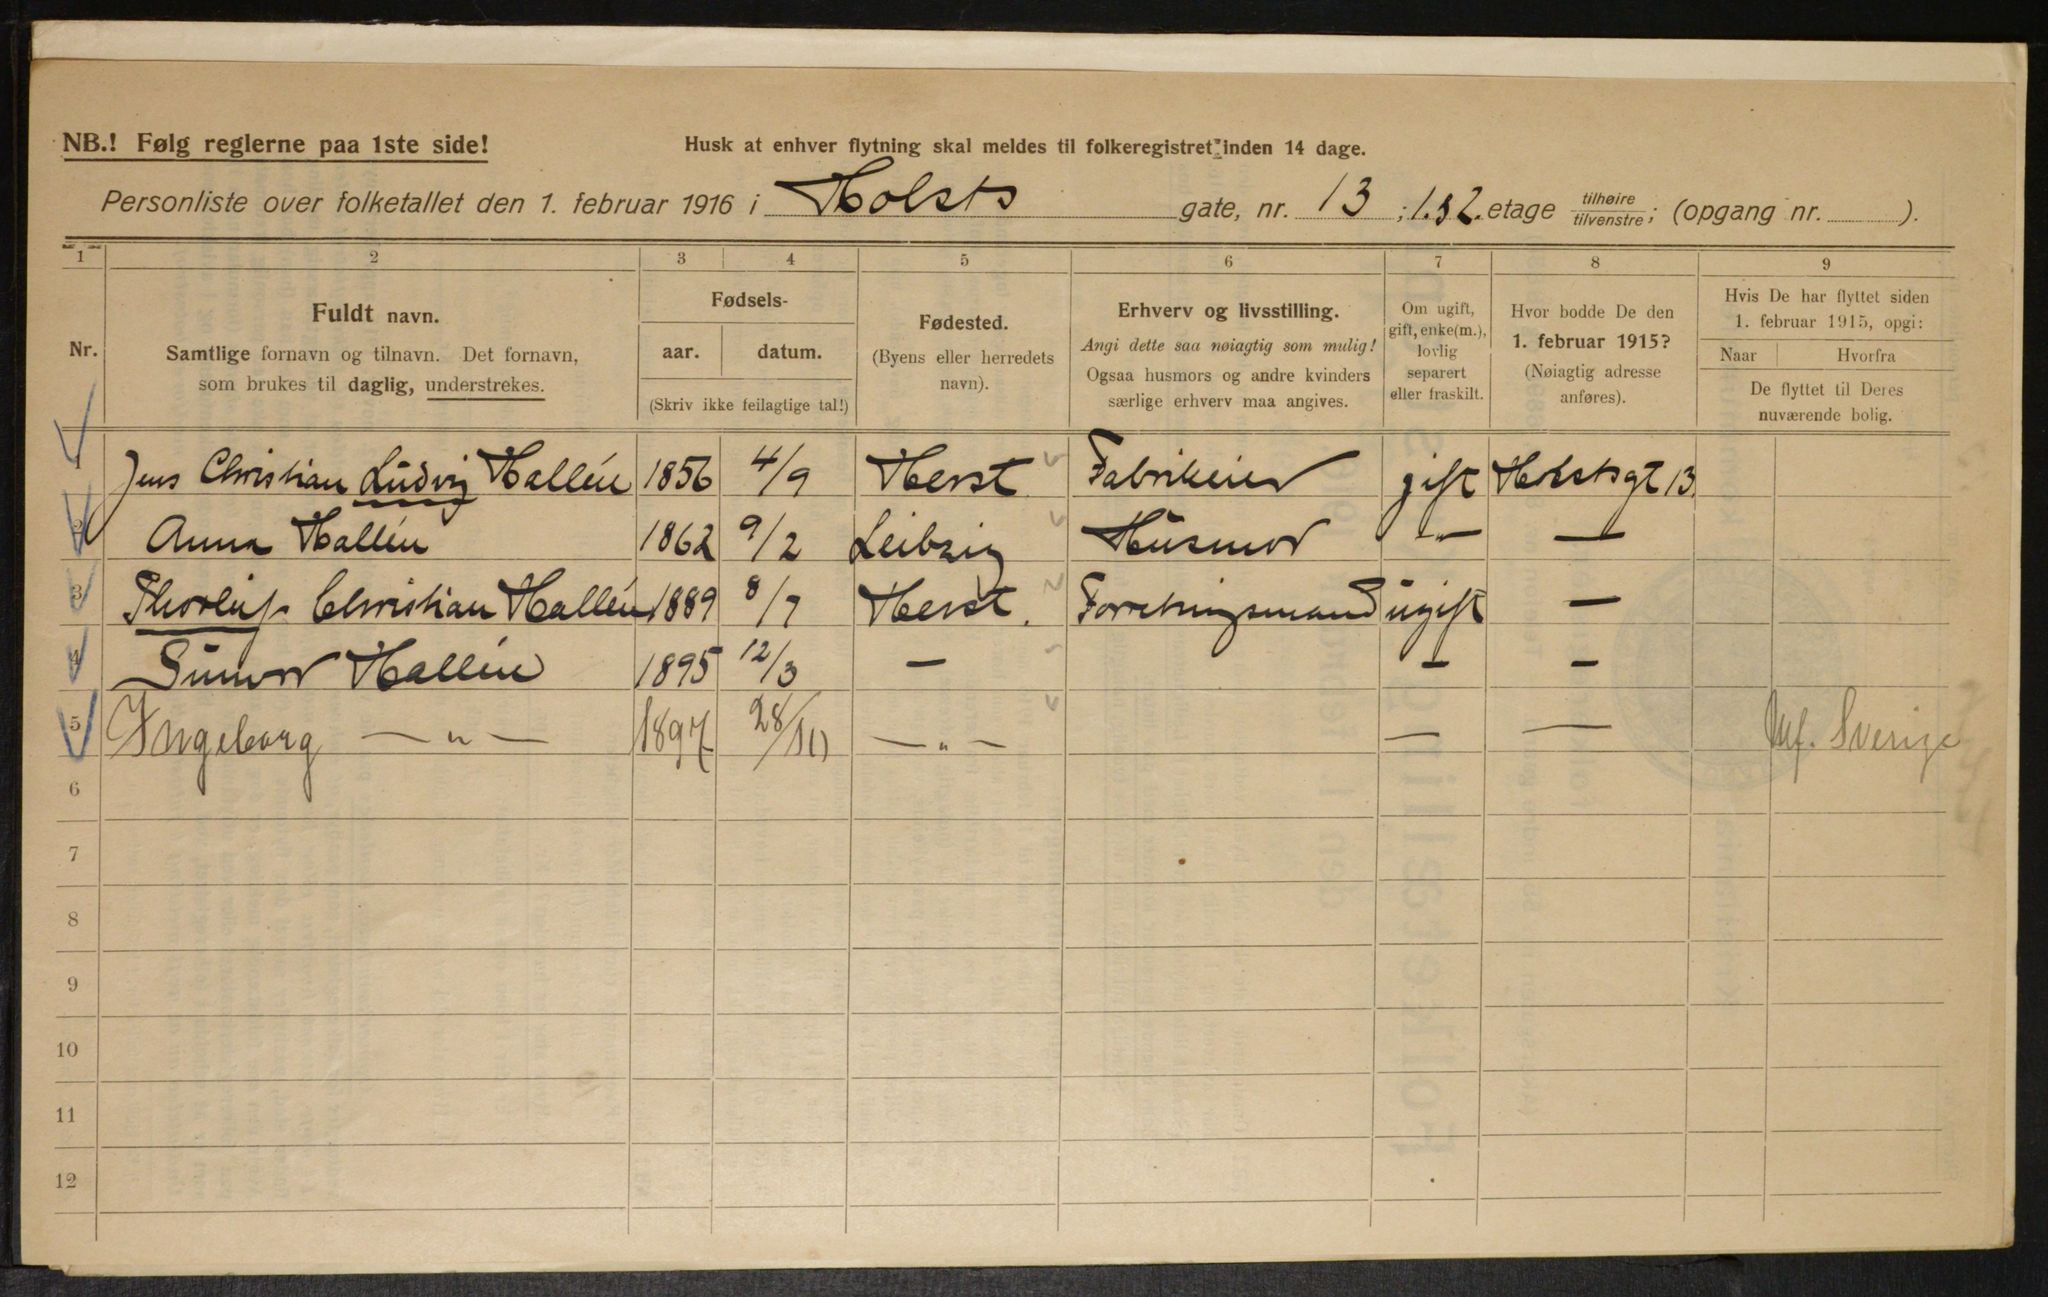 NB.! Følg reglerne paa 1ste side!
Husk at enhver flytning skal meldes til folkeregistret inden 14 dage.
Personliste over folketallet den 1. februar 1916 i Holsts gate, nr. 13 ; 1. & 2. etage tilhøire/tilvenstre; (opgang nr. ).
1 2 3 4 5 6 7 8 9
Nr.
Fuldt navn.
Samtlige fornavn og tilnavn. Det fornavn,
som brukes til daglig, understrekes.
Fødsels-
aar. datum.
(Skriv ikke feilagtige tal!)
Fødested.
(Byens eller herredets
navn).
Erhverv og livsstilling.
Angi dette saa nøiagtig som mulig!
Ogsaa husmors og andre kvinders
særlige erhverv maa angives.
Om ugift,
gift, enke(m.),
lovlig
separert
eller fraskilt.
Hvor bodde De den
1. februar 1915?
(Nøiagtig adresse
anføres).
Hvis De har flyttet siden
1. februar 1915, opgi:
Naar Hvorfra
De flyttet til Deres
nuværende bolig.
1 Jens Christian Ludvig Hallén 1856 4/9 Herst Fabrikeier gift Holstsgt 13
2 Anna Hallén 1862 9/2 Leibzig Husmor -"- —
3 Thorleif Christian Hallén 1889 8/7 Herst. Forretningsmand ugift —
4 Hallén 1895 12/3 — — —
5 Ingeborg — " — 1897 28/11 — " — — — Sverige
6
7
8
9
10
11
12